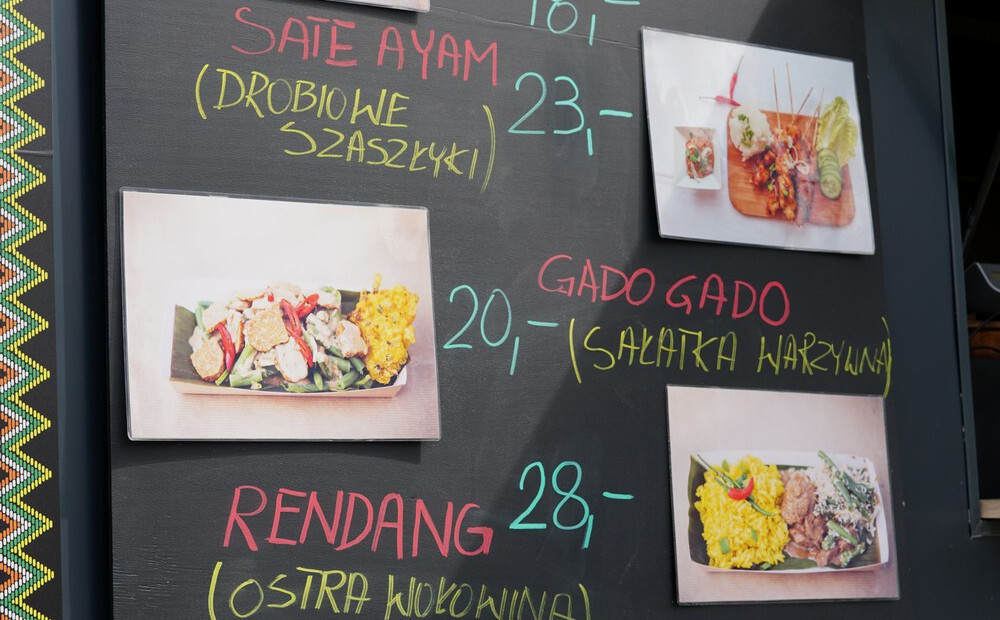 18,-
SATE AYAM
23,-
(DROBIOWE
SZASZŁYKI)
GADO GADO
20,-
(SAŁATKA WARZYWNA)
28,-
RENDANG
(OSTRA WOŁOWINA)